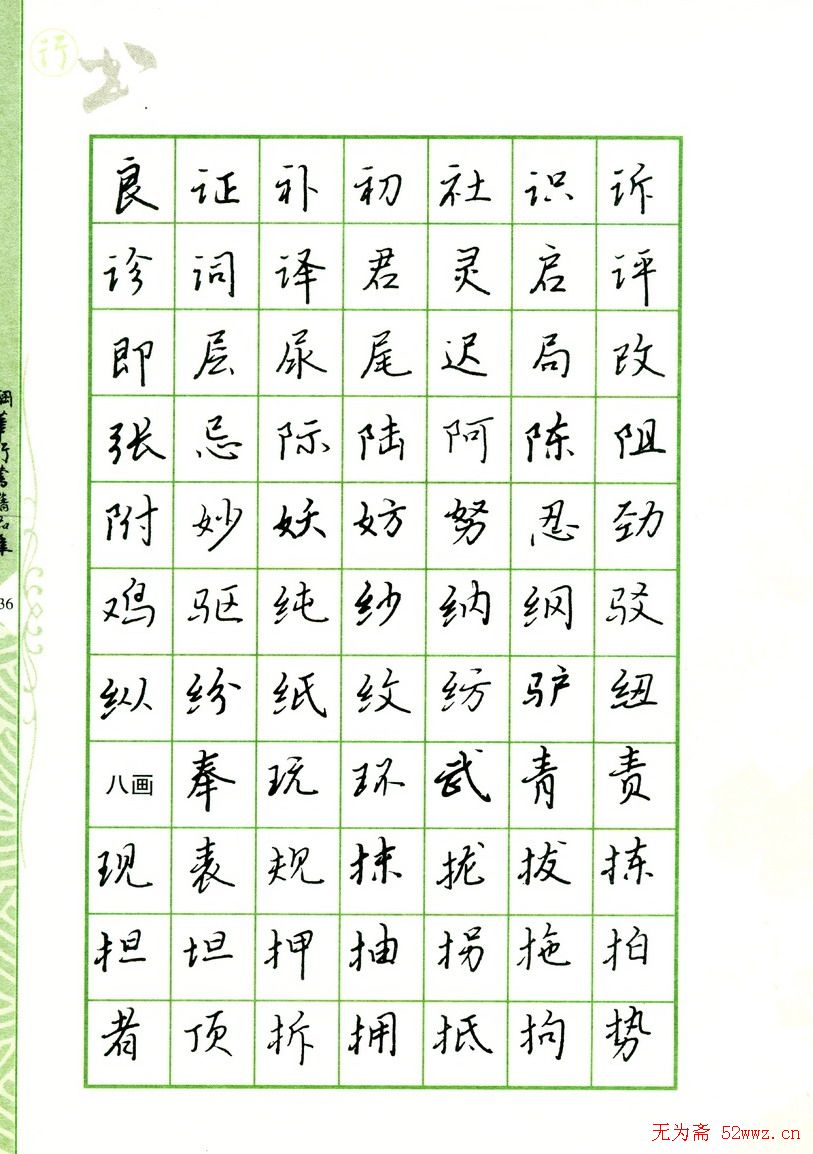 行书
良证补初社识诉
诊词译君灵启评
即层尿尾迟局改
张忌际陆阿陈阻
附妙妖妨努忍劲
鸡驱纯纱纳纲驳
纵纷纸纹纺驴纽
八画奉玩环武青责
现表规抹拢拔拣
担坦押抽拐拖拍
者顶拆拥抵拘势
36
无为斋 52wwz.cn